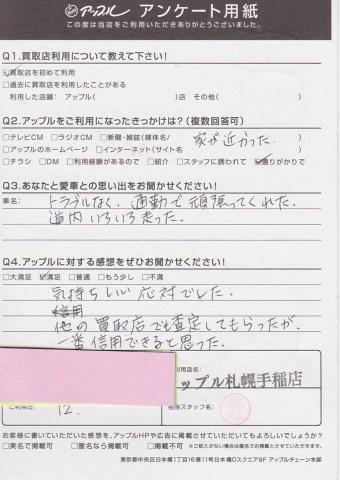 アップル アンケート用紙
この度は当店をご利用いただきありがとうございました。
Q1.買取店利用について教えて下さい!
☑買取店を初めて利用
□過去に買取店を利用したことがある
利用した店舗: アップル( )店 その他( )
Q2.アップルをご利用になったきっかけは?(複数回答可)
□テレビCM □ラジオCM □新聞・雑誌(媒体名/ 家が近かった。
□アップルのホームページ □インターネット(サイト名
□チラシ □DM □利用経験があるので □紹介 □スタッフに誘われて ☑通りがかりで
Q3.あなたと愛車との思い出をお聞かせください!
車名:
トラブルなく、通勤で頑張ってくれた。
道内いろいろ走った。
Q4.アップルに対する感想をぜひお聞かせください!
□大満足 ☑満足 □普通 □もう少し □不満
気持ちいい応対でした。
他の買取店でも査定してもらったが、
一番信用できると思った。
利用店名:
ップル札幌手稲店
ご利用日:
12.
担当スタッフ名:
お客様に書いていただいた感想を、アップルHPや広告に掲載させていただいてもよろしいでしょうか?
□実名で掲載可 □匿名なら掲載可 □掲載不可 (※ご記入がない場合は匿名での掲載とさせていただきます。)
東京都中央区日本橋1丁目16番11号日本橋Dスクエア9F アップルチェーン本部